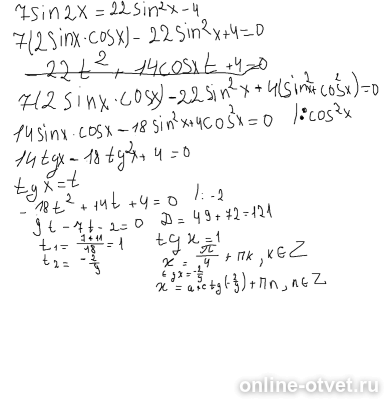 7sin2x = 22sin²x - 4
7(2sinx·cosx) - 22sin²x + 4 = 0
- 22t² + 14cosxt + 4 = 0
7(2sinx·cosx) - 22sin²x + 4(sin²x + cos²x) = 0
14sinx·cosx - 18sin²x + 4cos²x = 0 |: cos²x
14tgx - 18tg²x + 4 = 0
tgx = t
- 18t² + 14t + 4 = 0 /: -2
9t - 7t - 2 = 0 D = 49 + 72 = 121
t₁ = (7+11)/18 = 1 tgx = 1
t₂ = -2/9 x = π/4 + πk, k∈Z
tgx = -2/9
x = arctg(-2/9) + πn, n∈Z
online-otvet.ru